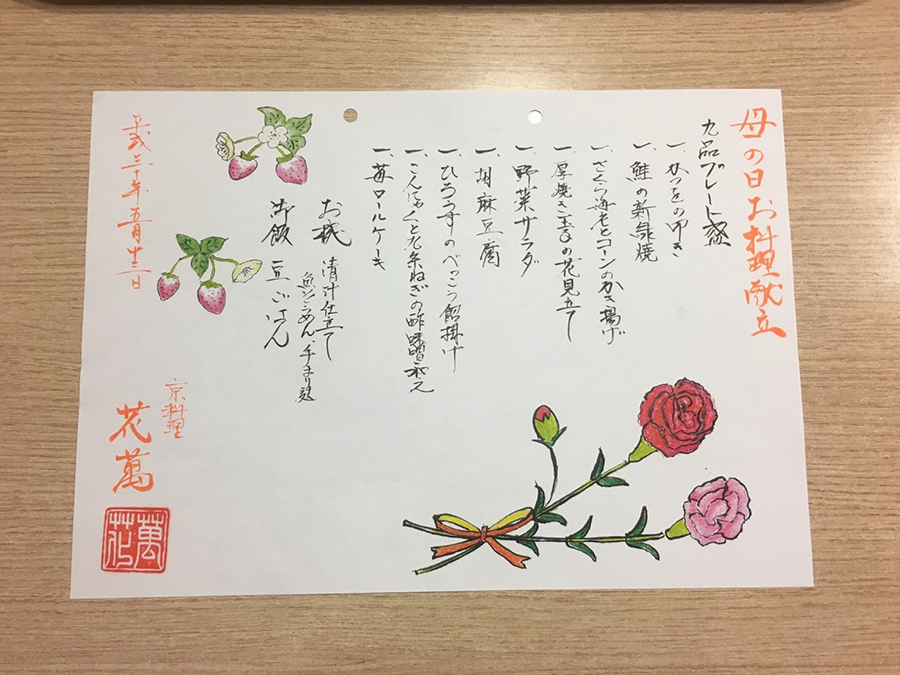 母の日お料理献立
九品プレート盛
一、かつをの叩き
一、鮭の新緑焼
一、さくら海老とコーンのかき揚げ
一、厚焼き玉子の花見立て
一、野菜サラダ
一、胡麻豆腐
一、ひろうすのべっこう餡掛け
一、こんにゃくと九条ねぎの酢味噌和え
一、苺ロールケーキ
お椀 清汁仕立て
魚そうめん、手まり麩
御飯 豆ごはん
平成三十年五月十三日
京料理
花萬
花萬